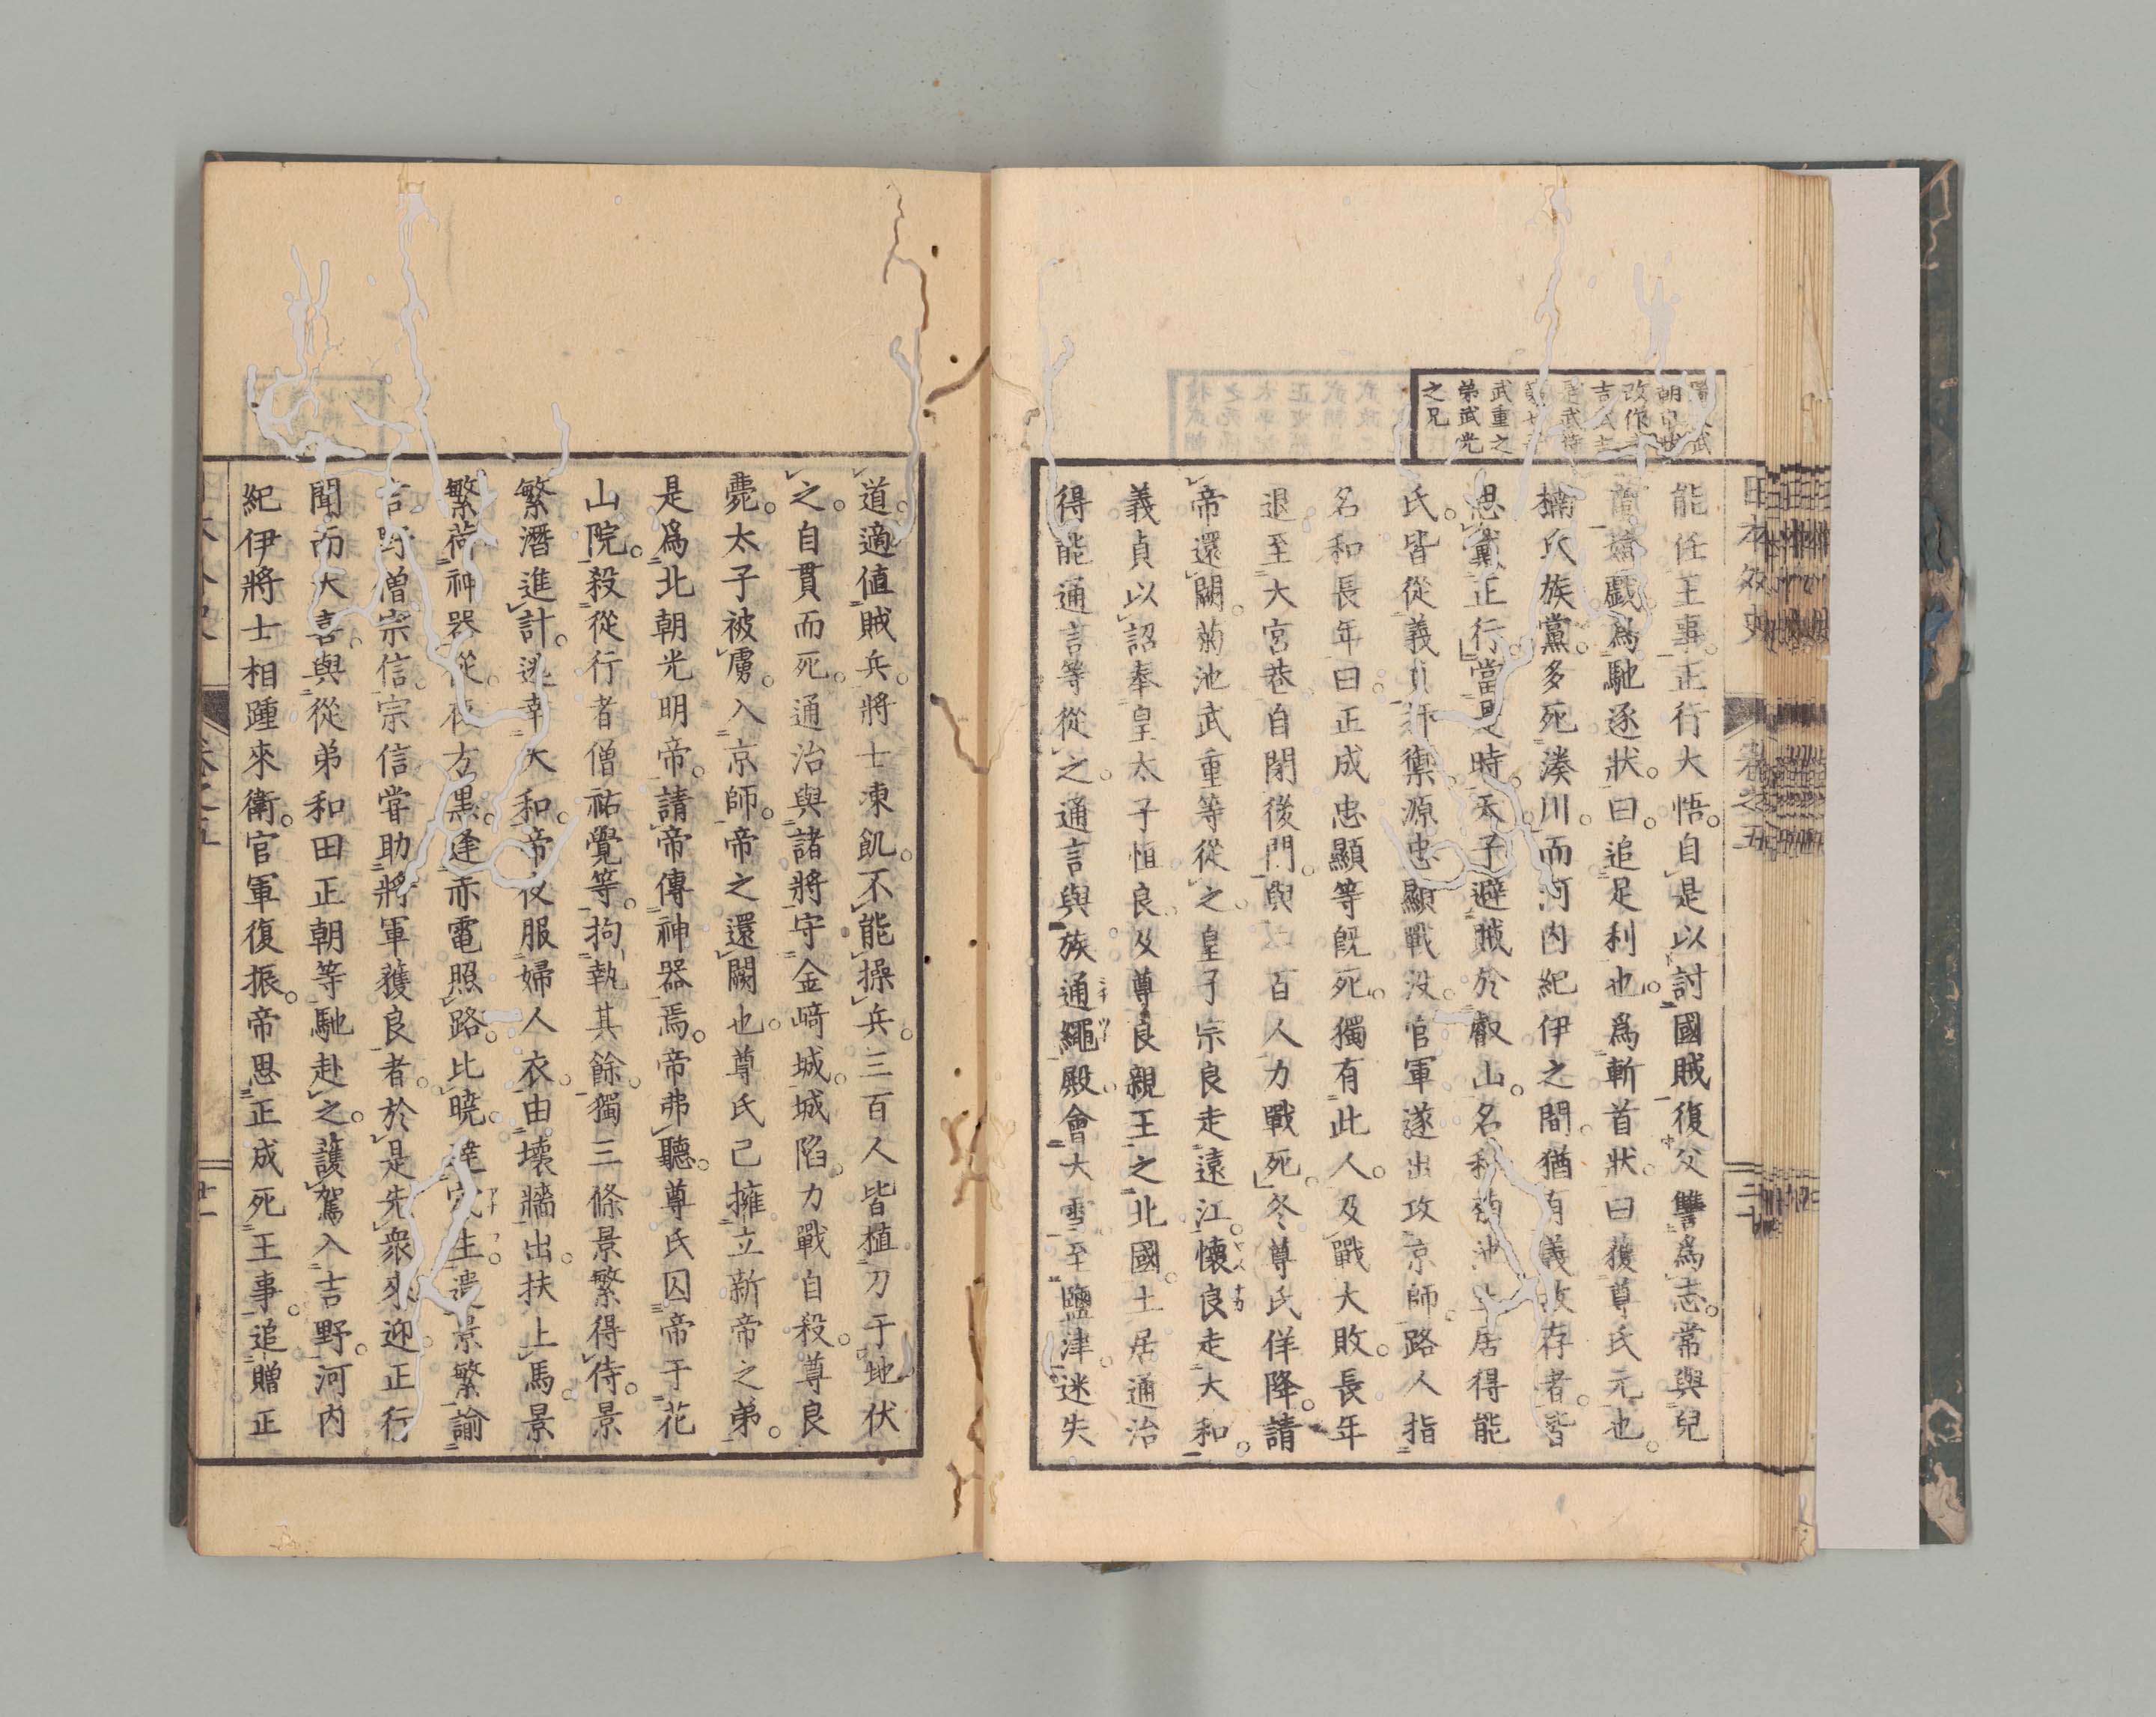 武重之
弟武光
之兄
能任王事正行大悟。自是以討國賊復父讐爲志。常與兒
戲爲馳逐狀。曰。追足利也。爲斬首狀。曰獲尊氏元也。
楠氏族黨多死湊川。而河内紀伊之間。猶有義故存者。皆
思黨正行當是時。天子避賊於叡山。名和菊池土居得能
氏。皆從義貞扞禦。源忠顯戰没。官軍遂出攻京師。路人指
名和長年曰。正成忠顯等旣死。獨有此人。及戰大敗。長年
退至大宮巷。自閉後門。與二百人力戰死。冬。尊氏佯降。請
帝還闕。菊池武重等從之。皇子宗良走遠江。懷良走大和。
義貞以詔奉皇太子恒良。及尊良親王之北國。土居通治
得能通言等從之。通言與族通繩殿。會大雪。至鹽津。迷失
道。適値賊兵。將士凍飢。不能操兵。三百人皆植刀于地。伏
之。自貫而死。通治與諸將守金﨑城。城陷。力戰自殺。尊良
薨。太子被虜。入京師。帝之還闕也。尊氏已擁立新帝之弟。
是爲北朝光明帝。請帝傳神器焉。帝弗聽。尊氏囚帝于花
山院。殺從行者僧祐覺等。拘執其餘。獨三條景繁得侍。景
繁潛進計。逃幸大和。帝夜服婦人衣。由壞牆出。扶上馬。景
繁荷神器從。夜方黑。逢赤電照路。比曉達穴生。遣景繁諭
吉野僧宗信。宗信嘗助將軍護良者。於是先衆來迎。正行
聞而大喜。與從弟和田正朝等馳赴之。護駕入吉野。河内
紀伊將士相踵來衛。官軍復振。帝思正成死王事。追贈正